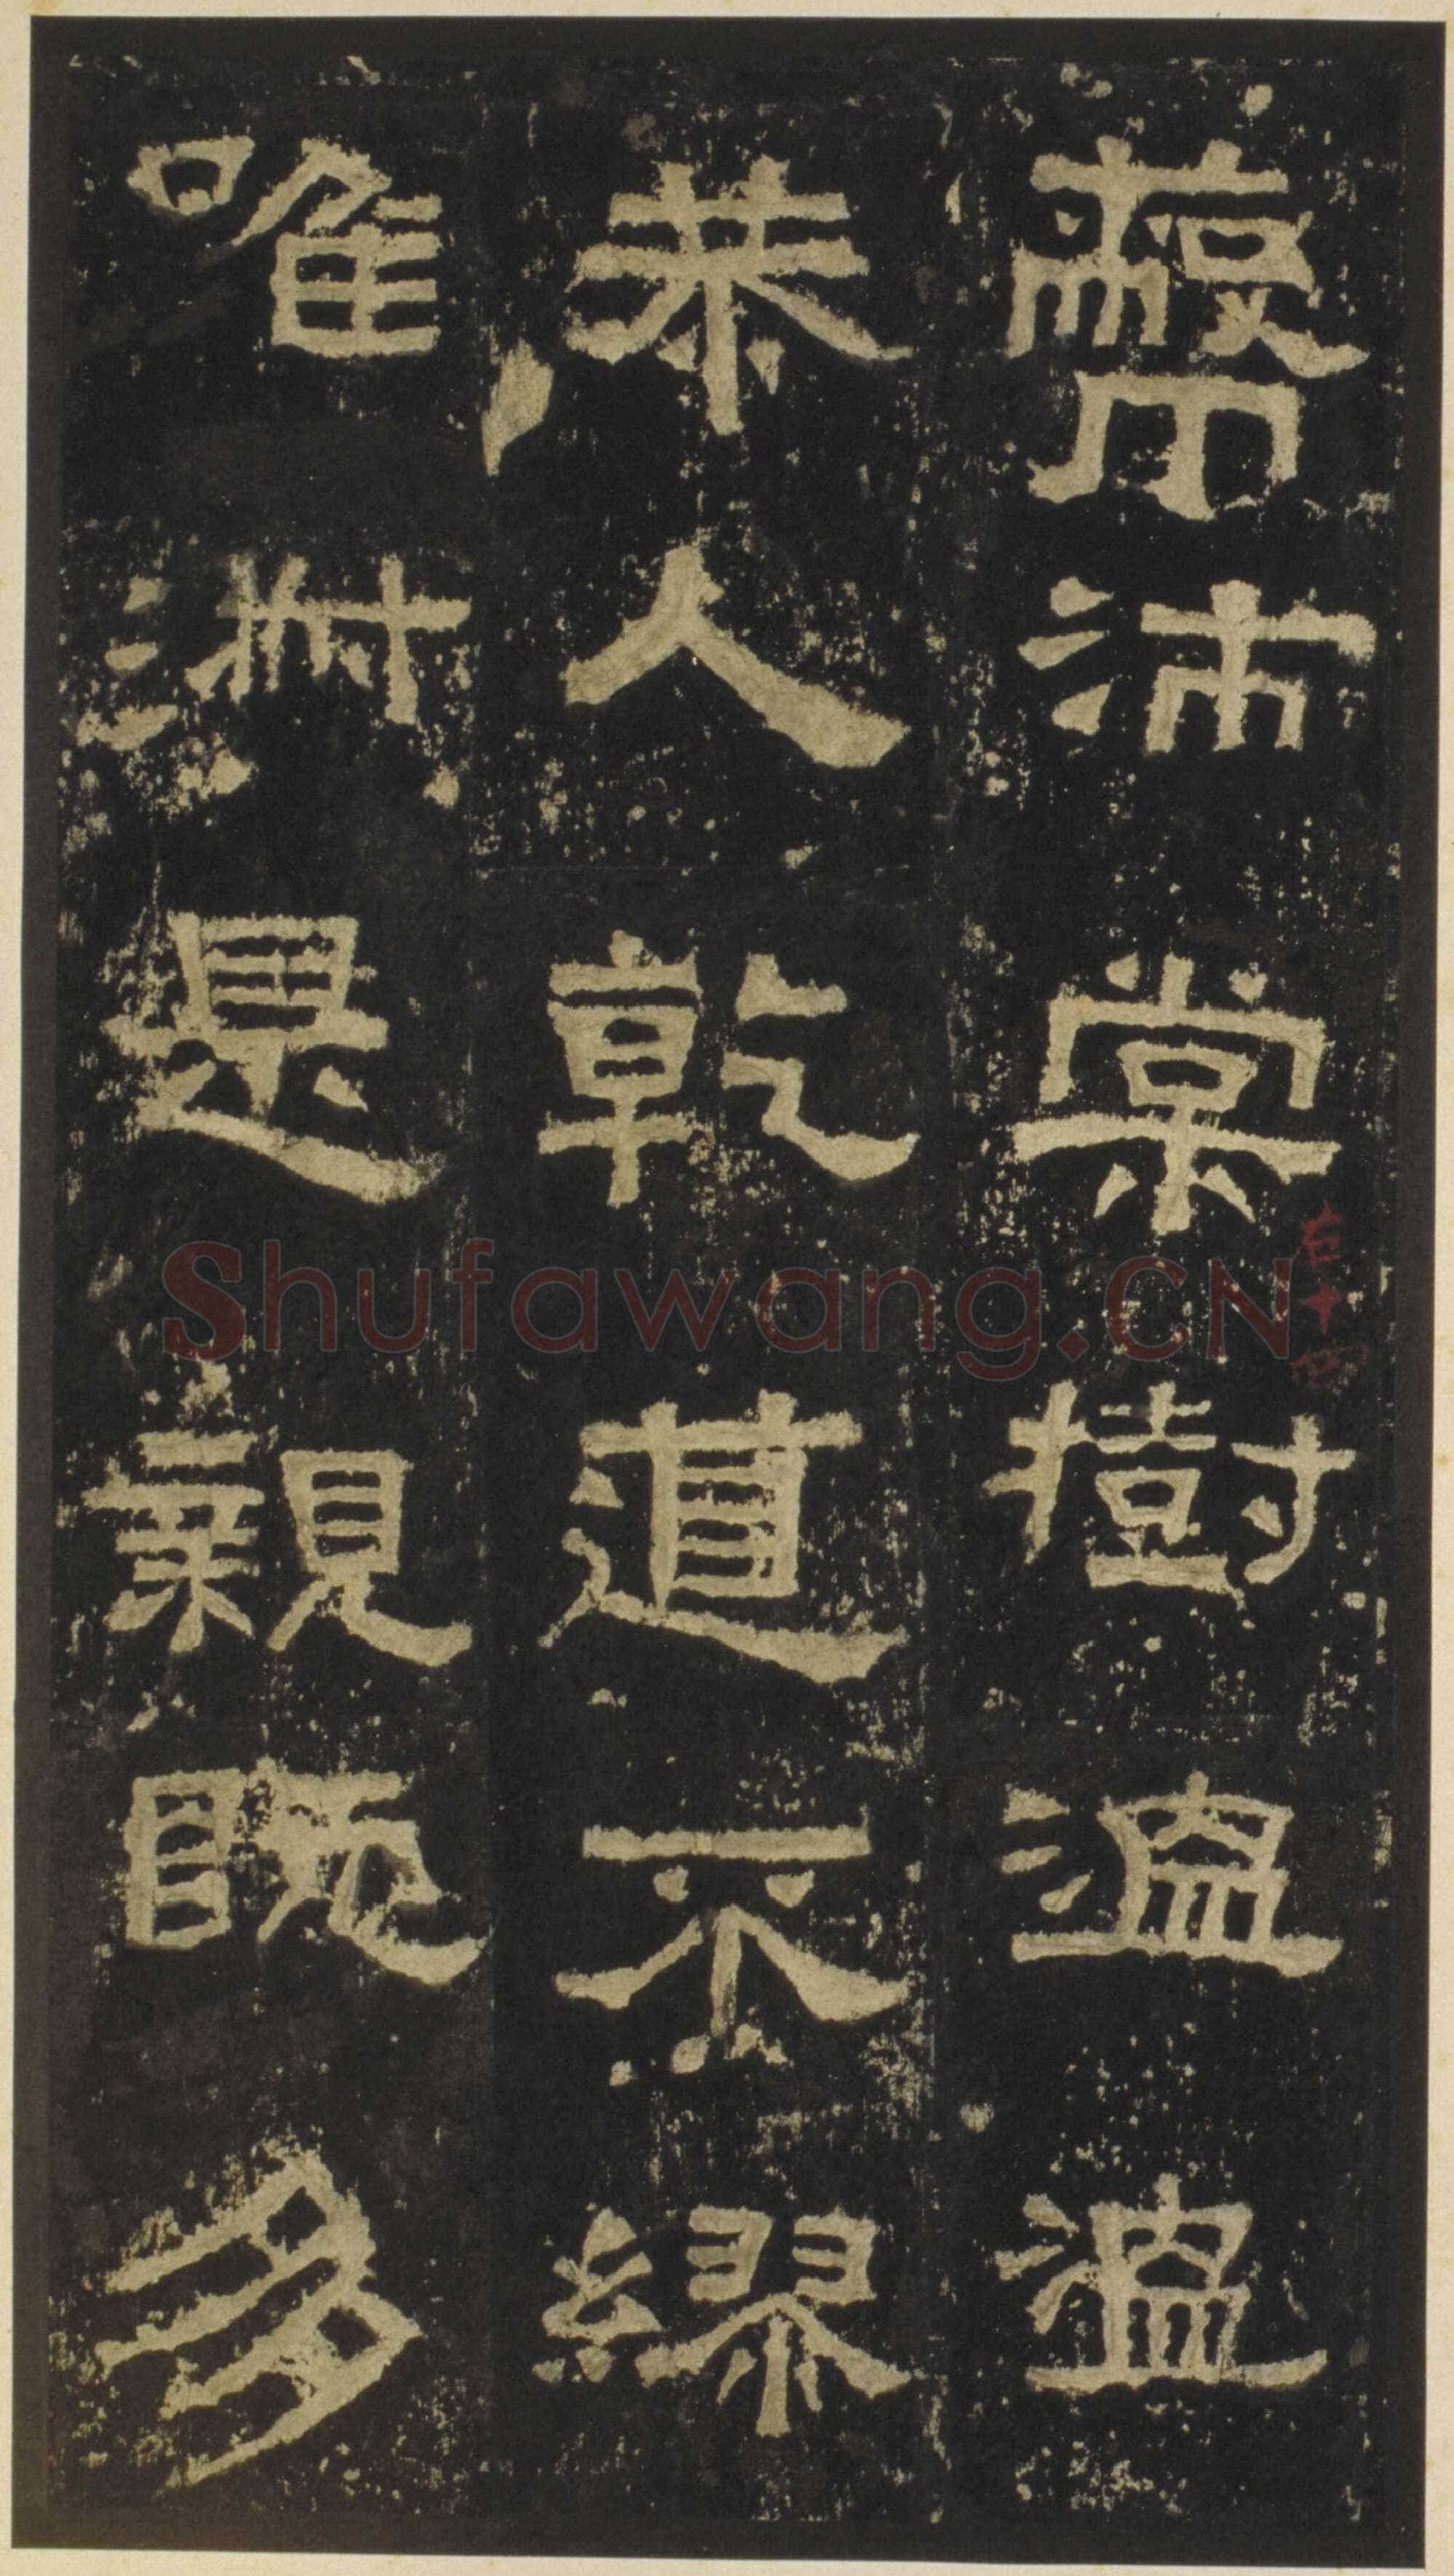 蔽沛棠樹溫溫
恭人乾道不繆
唯淑是親既多
右十四
Shufawang.CN